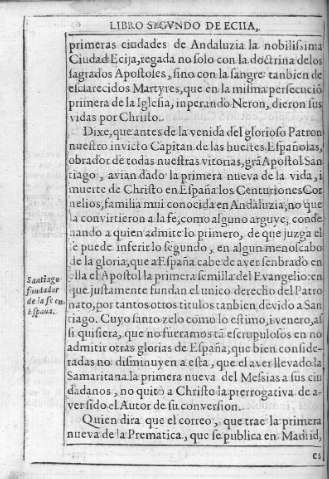 LIBRO SEGVNDO DE ECIIA,
primeras ciudades de Andaluzia la nobilissima
Ciudad Ecija, regada no solo con la doctrina de los
sagrados Apostoles, sino con la sangre tanbien de
esclarecidos Martyres, que en la misma persecuciõ
primera de la Iglesia, inperando Neron, dieron sus
vidas por Christo.
Dixe, que antes de la venida del glorioso Patron
nuestro invicto Capitan de las huestes Españolas,
obrador de todas nuestras vitorias, grã Apostol San-
tiago, avian dado la primera nueva de la vida, i
muerte de Christo en España los Centuriones Cor
nelios, familia mui conocida en Andaluzia, no que
la convirtieron a la fe, como alguno arguye, conde
nando a quien admite lo primero, de que juzga el
se puede inferir lo segundo, en algun menoscabo
de la gloria, que a España cabe de aver senbrado en
ella el Apostol la primera semilla del Evangelio: en
que justamente fundan el unico derecho del Patro
nato, por tantos otros titulos tanbien devido a San
tiago. Cuyo santo zelo como lo estimo, i venero, assi
si quisiera, que no fueramos tã escrupulosos en no
admitir otras glorias de España, que bien conside-
radas no disminuyen a esta, que el aver llevado la
Samaritana la primera nueva del Messias a sus ciu
dadanos, no quitò a Christo la prerrogativa de a-
ver sido el Autor de su conversion.
Quien dira que el correo, que trae la primera
nueva de la Prematica, que se publica en Madrid,
es
Santiago
fundador
de la fe en
España.